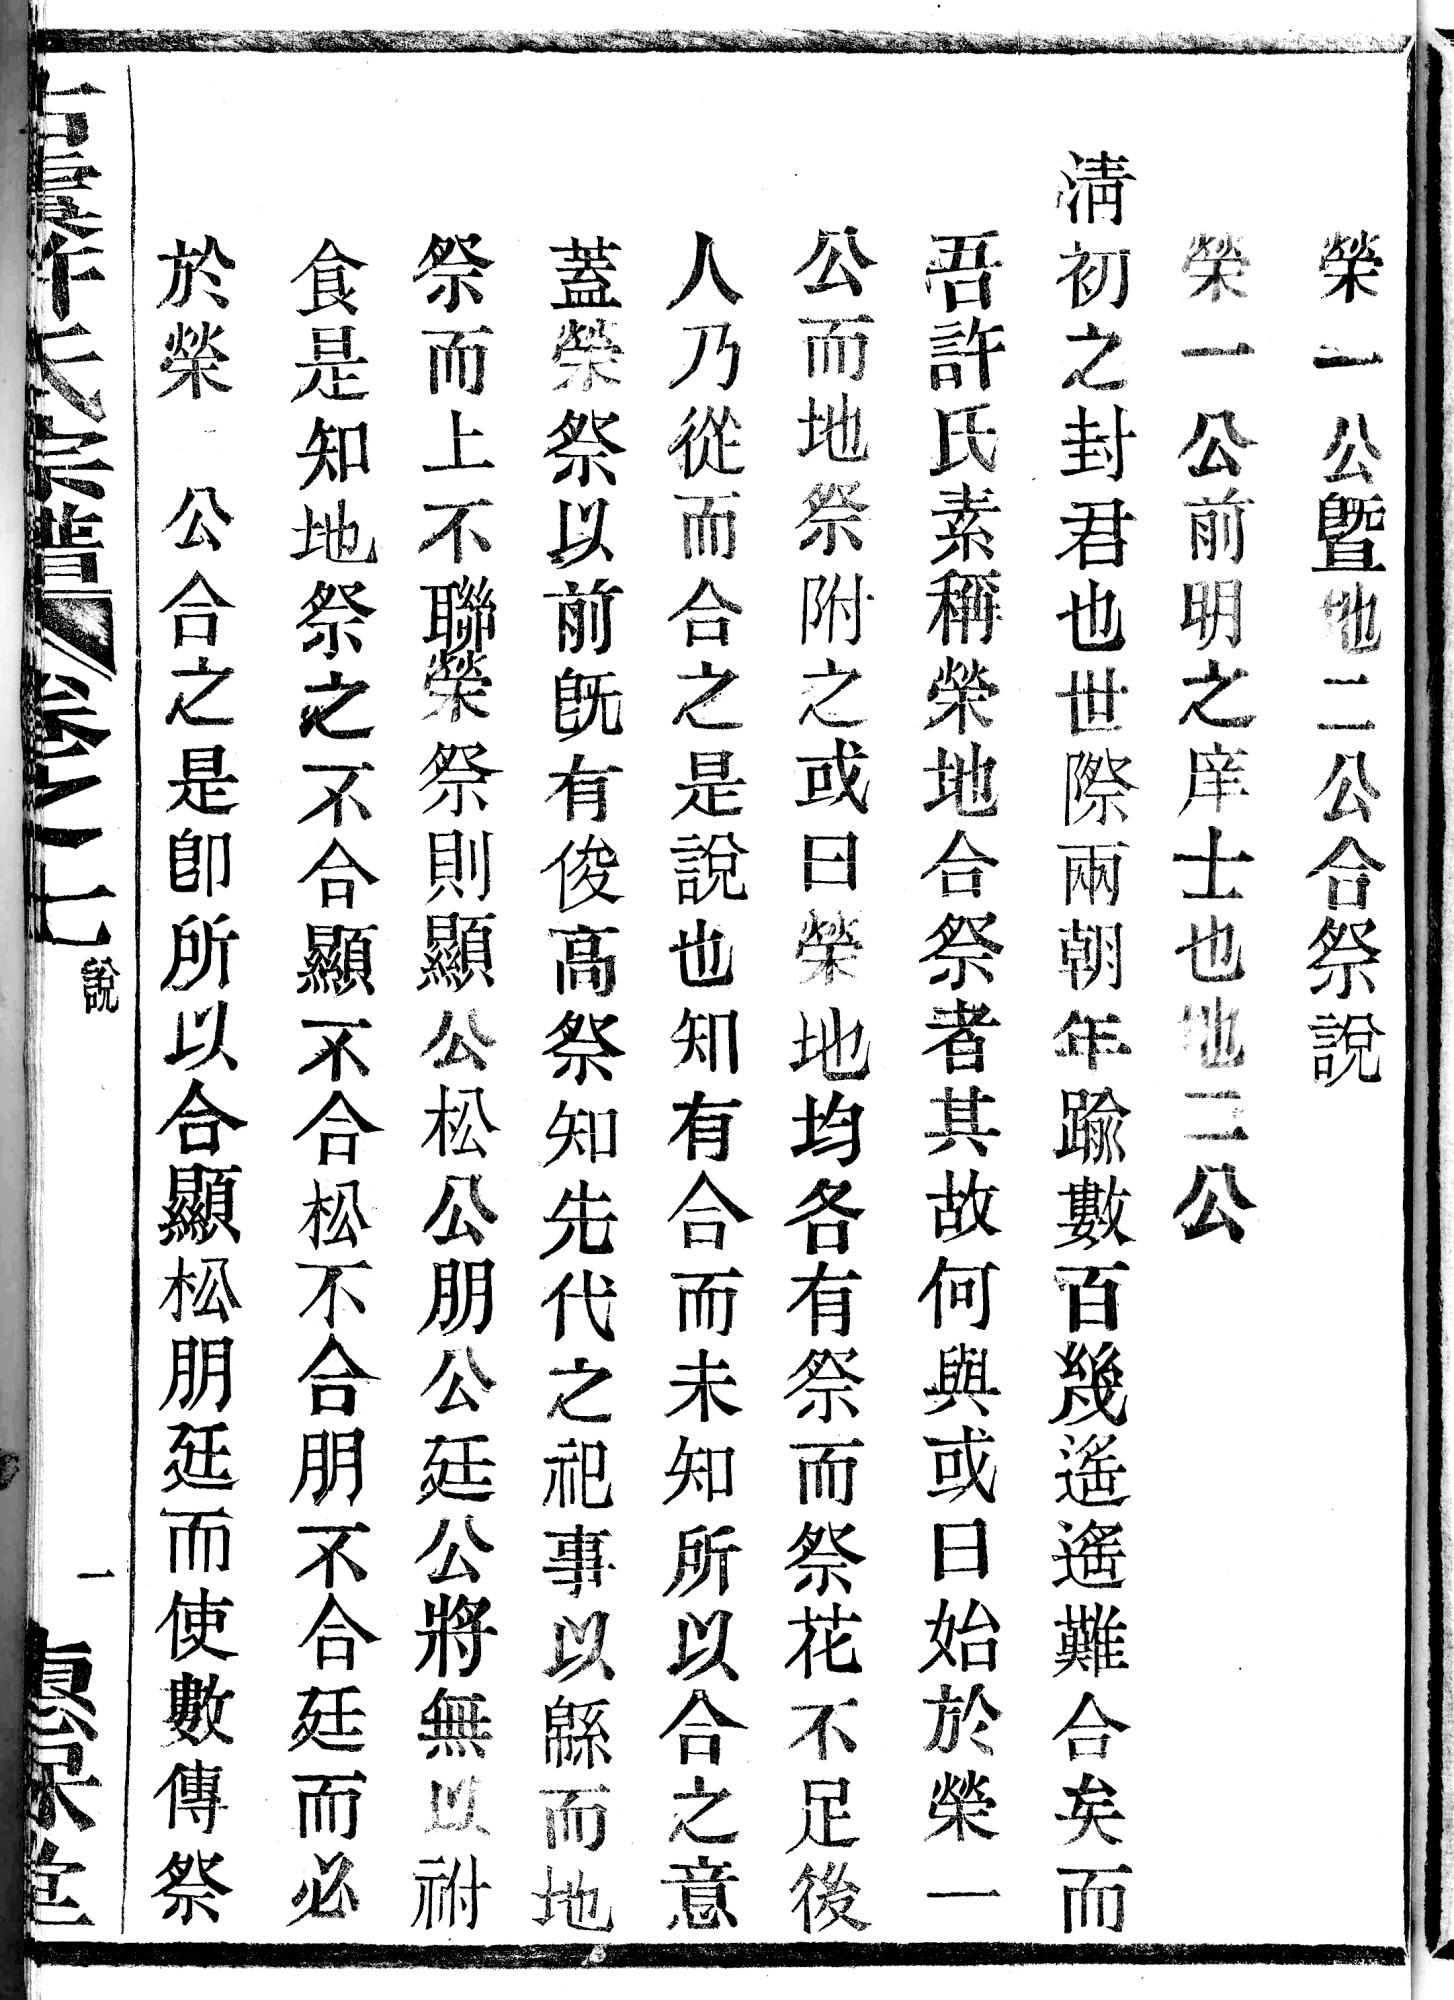 榮一公曁地二公合祭說
榮一公前明之庠士也地二公
淸初之封君也世際兩朝年踰數百幾遙遙難合矣而
吾許氏素稱榮地合祭者其故何與或曰始於榮一
公而地祭附之或曰榮地均各有祭而祭花不足後
人乃從而合之是說也知有合而未知所以合之意
蓋榮祭以前旣有俊高祭知先代之祀事以緜而地
祭而上不聯榮祭則顯公松公朋公廷公將無以祔
食是知地祭之不合顯不合松不合朋不合廷而必
於榮 公合之是卽所以合顯松朋廷而使數傳祭
許氏宗譜 卷之七 說 一 惠保堂